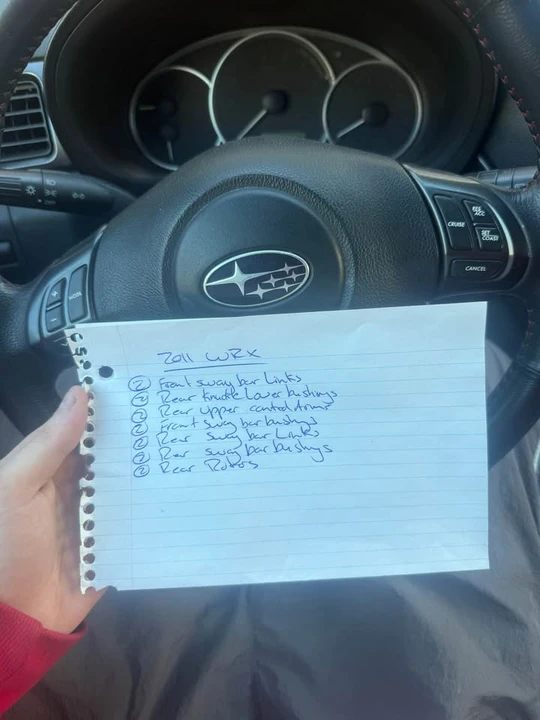 RES
ACC
CRUISE
SET
COAST
CANCEL
MODE
OFF
2011 WRX
② Front sway bar Links
② Rear knuckle Lower bushings
② Rear upper control Arms
② Front sway bar bushings
② Rear sway bar Links
② Rear sway bar bushings
② Rear Rotors